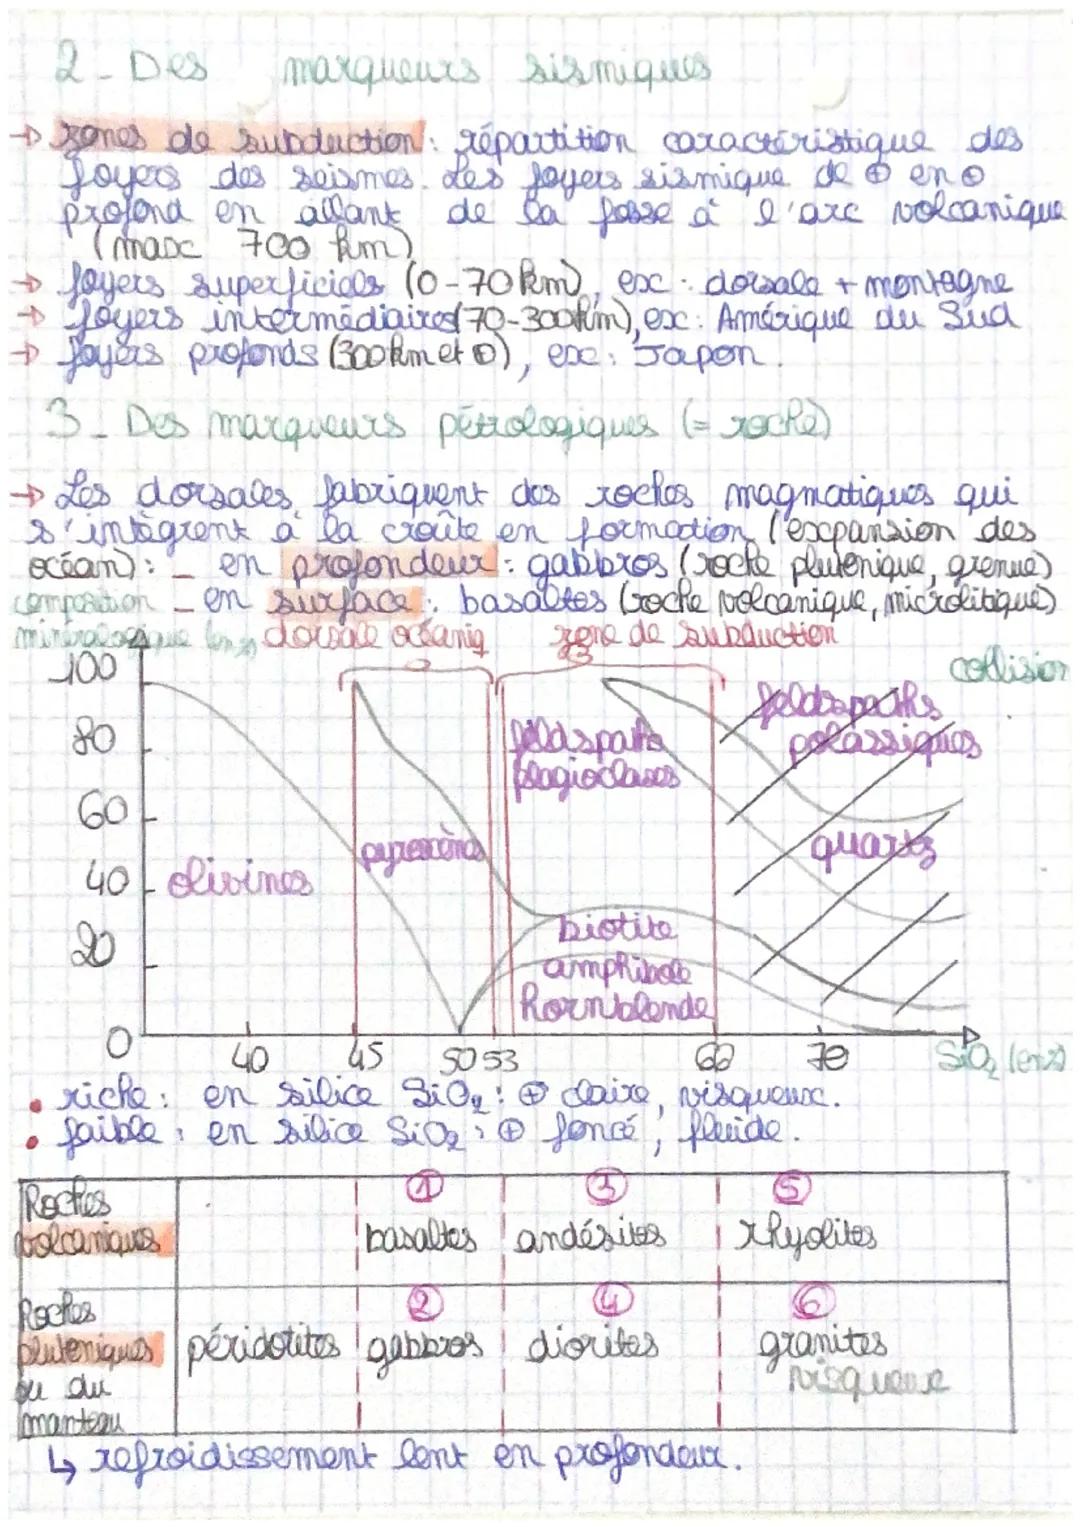 2 - Des marqueurs sismiques
→ zones de subduction : répartition caractéristique des
foyers des seismes. Les foyers sismique de ⊕ en ⊕
profond en allant de la fosse à l'arc volcanique
(max 700 km)
→ foyers superficiels (0-70 km), ex : dorsale + montagne
→ foyers intermédiaires (70-300km), ex : Amérique du Sud
→ foyers profonds (300 km et ⊕), ex : Japon.
3 - Des marqueurs pétrologiques (= roche)
→ Les dorsales fabriquent des roches magmatiques qui
s'intègrent à la croûte en formation (expansion des
océan) : - en profondeur : gabbros (roche plutonique, grenue)
composition - en surface : basaltes (roche volcanique, microlitique)
minéralogique (en %) dorsale océaniq zone de subduction
collision
100
80
60
40
20
0
feldspaths
potassiques
feldspaths
plagioclases
pyroxènes
quartz
olivines
biotite
amphibole
hornblende
40 45 50 53 66 70 SiO2 (en %)
• riche : en silice SiO2 : ⊕ claire, visqueux.
• faible : en silice SiO2 : ⊕ foncé, fluide.
Roches volcaniques
① basaltes ③ andésites ⑤ rhyolites
Roches plutoniques ou du manteau
péridotites ② gabbros ④ diorites ⑥ granites
visqueux
↳ refroidissement lent en profondeur.